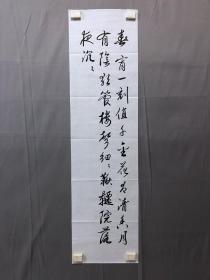 春宵一刻值千金花有清香月
有陰歌管樓聲細々鞦韆院落
夜沉々